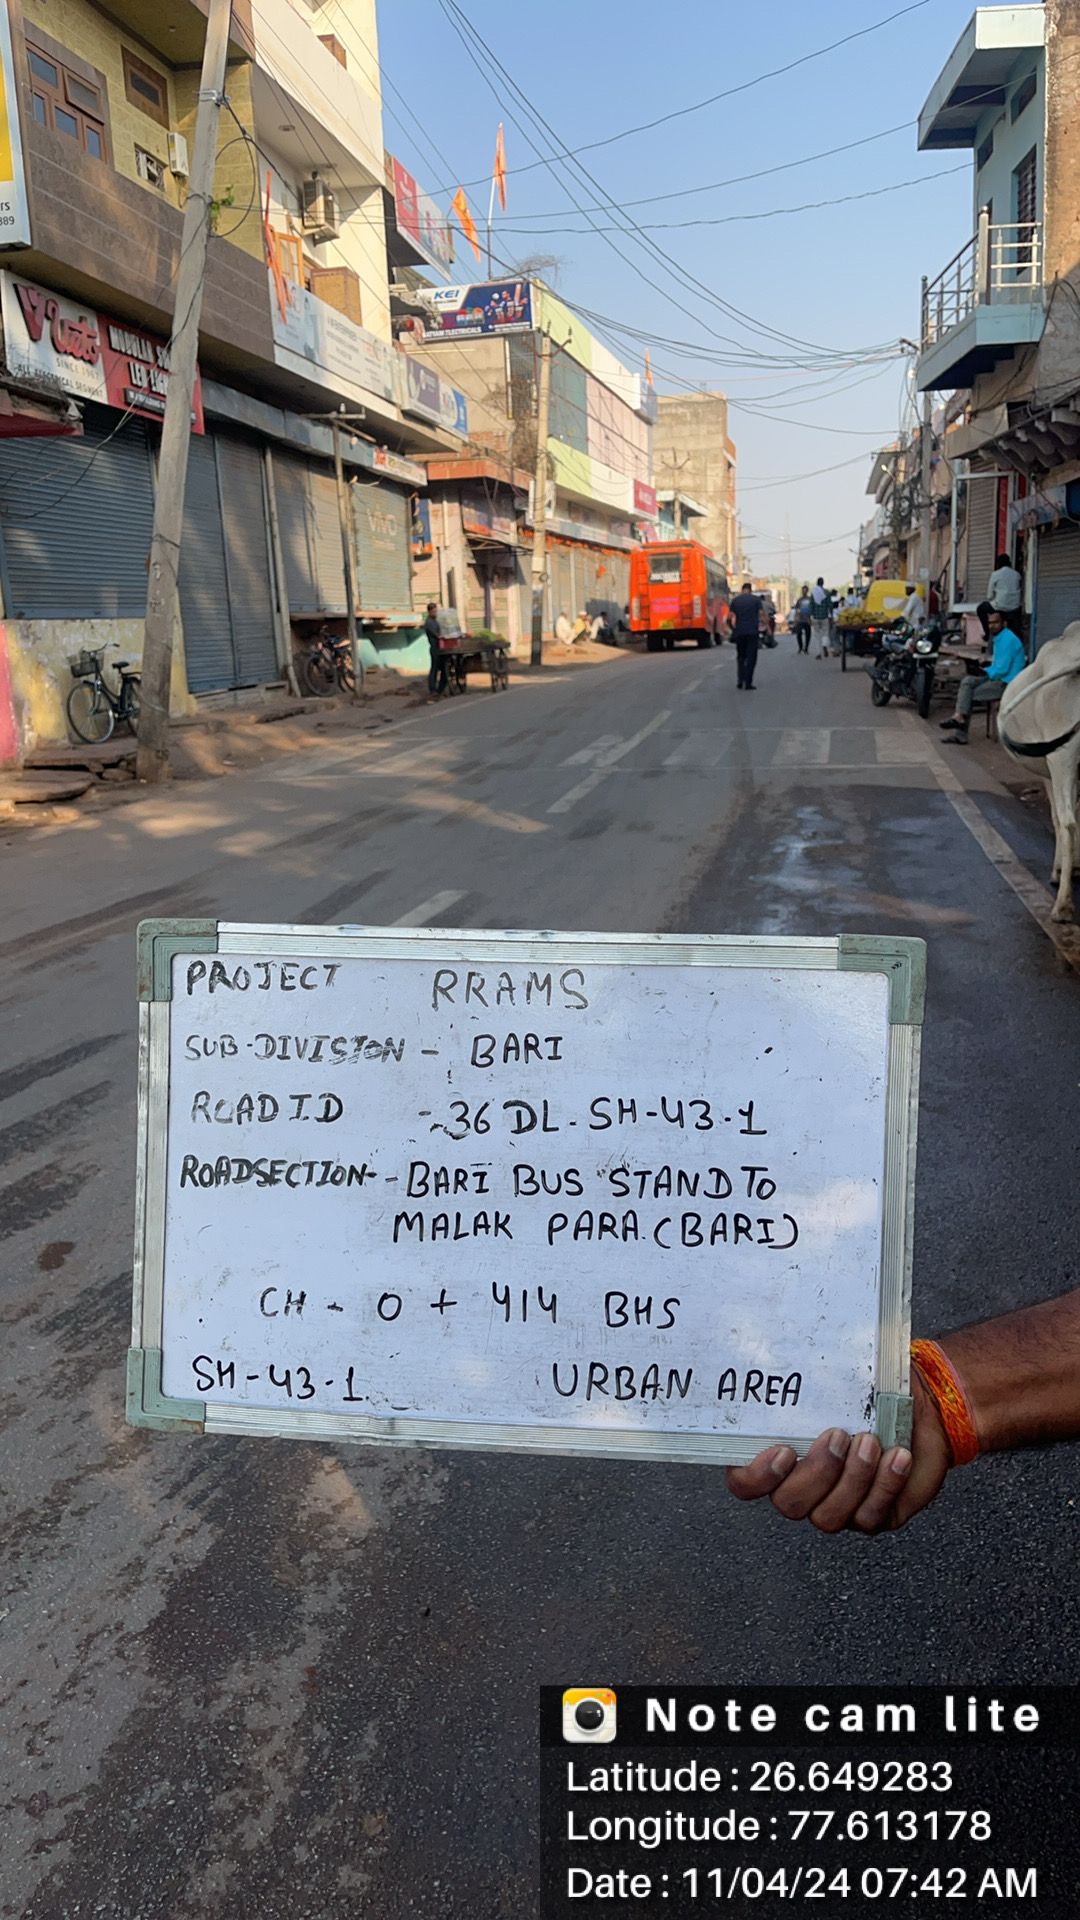 rs
389
KEI
Vneto
SINCE 1967
MODULAR
LED LIGHT
vivo
PROJECT RRAMS
SUB-DIVISION - BARI
ROAD ID - 36 DL. SH-43-1
ROADSECTION - BARI BUS STAND TO
MALAK PARA (BARI)
CH - 0 + 414 BHS
SH-43-1. URBAN AREA
Note cam lite
Latitude : 26.649283
Longitude : 77.613178
Date : 11/04/24 07:42 AM